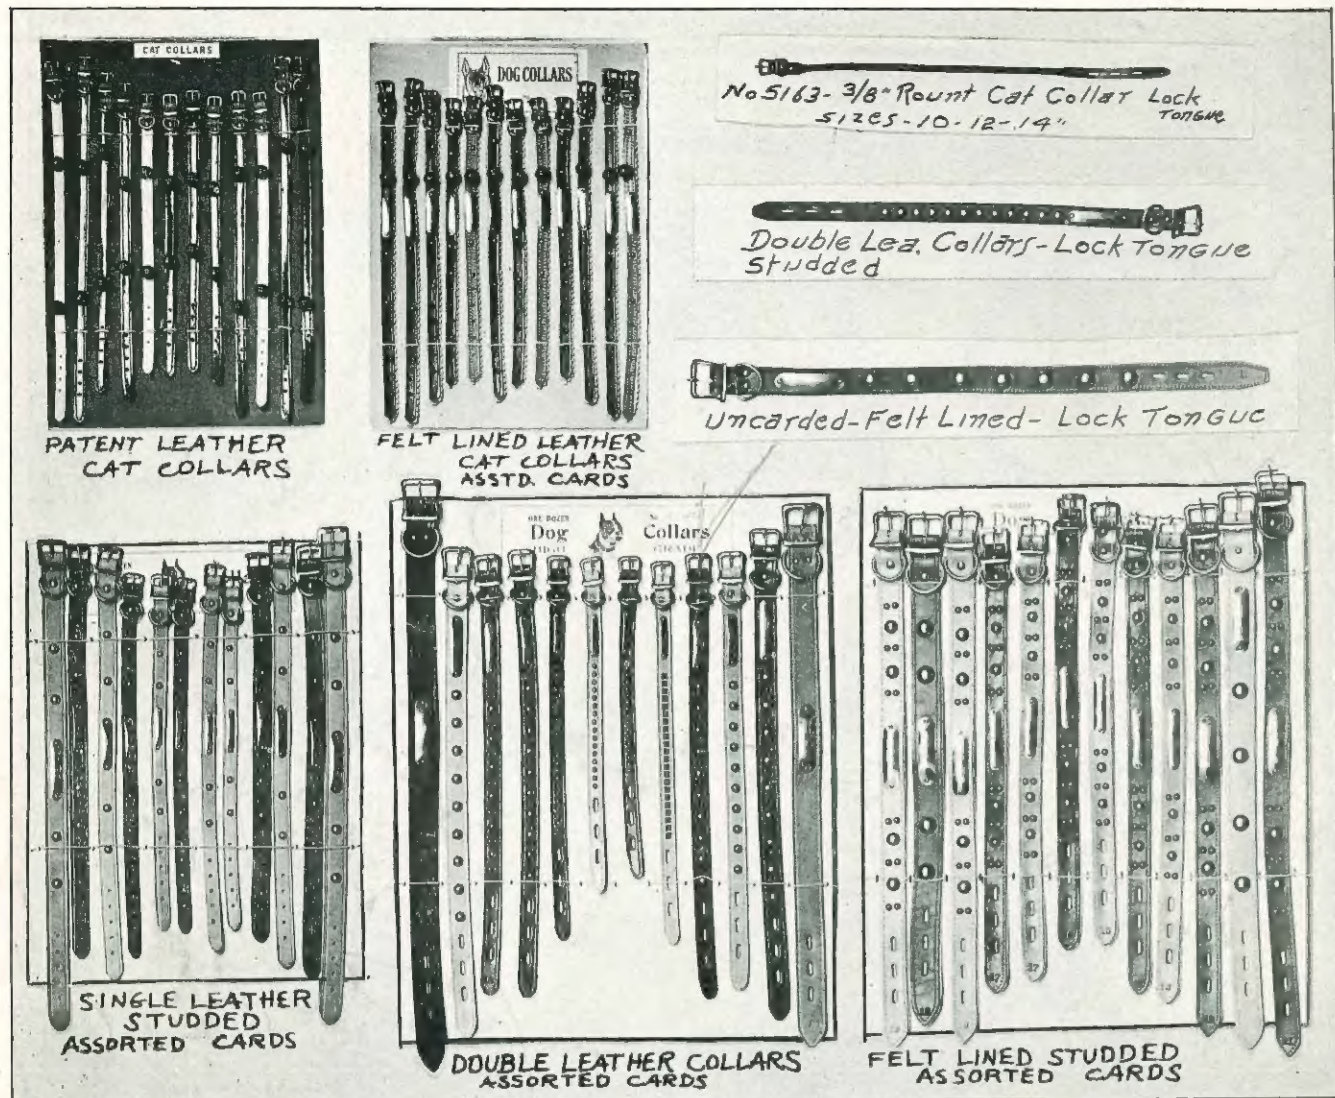 CAT COLLARS
PATENT LEATHER
CAT COLLARS
DOG COLLARS
FELT LINED LEATHER
CAT COLLARS
ASSTD. CARDS
No 5163 - 3/8" Rount Cat Collar Lock
Tongue
Sizes - 10 - 12 - 14"
Double Lea. Collars - Lock Tongue
Studded
Uncarded - Felt Lined - Lock Tongue
SINGLE LEATHER
STUDDED
ASSORTED CARDS
ONE DOZEN
Dog Collars
DOUBLE LEATHER COLLARS
ASSORTED CARDS
FELT LINED STUDDED
ASSORTED CARDS